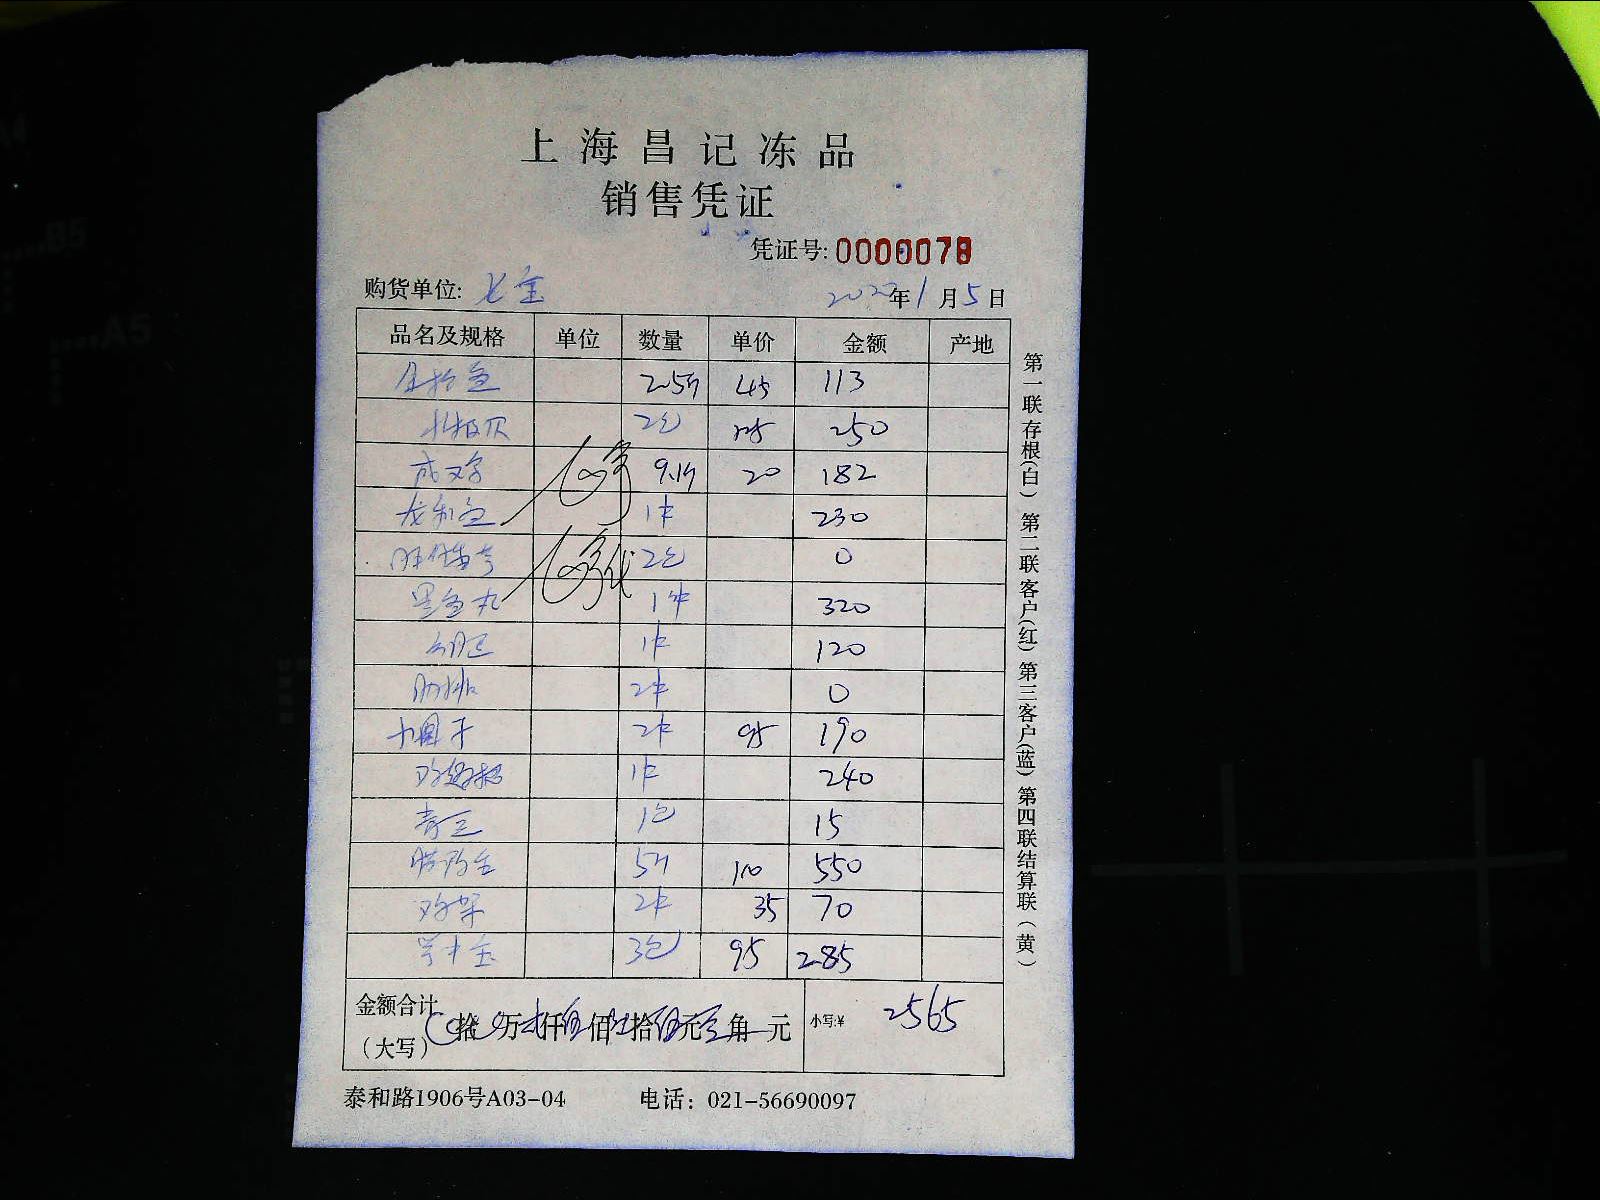 上海昌记冻品
销售凭证
凭证号:0000078
购货单位:
2022年1月5日
品名及规格 单位 数量 单价 金额 产地
2.5斤 45 113
2包 125 250
9.1斤 20 182
龙利鱼 1件 230
2包 0
黑鱼丸 1件 320
1件 120
肋排 2件 0
小圆子 2件 95 190
1件 240
青豆 1包 15
5斤 110 550
鸡架 2件 35 70
3包 95 285
金额合计(大写) 拾 万 仟 佰 拾 元 角 元 小写:¥ 2565
第一联存根(白) 第二联客户(红) 第三客户(蓝) 第四联结算联(黄)
泰和路1906号A03-04 电话: 021-56690097